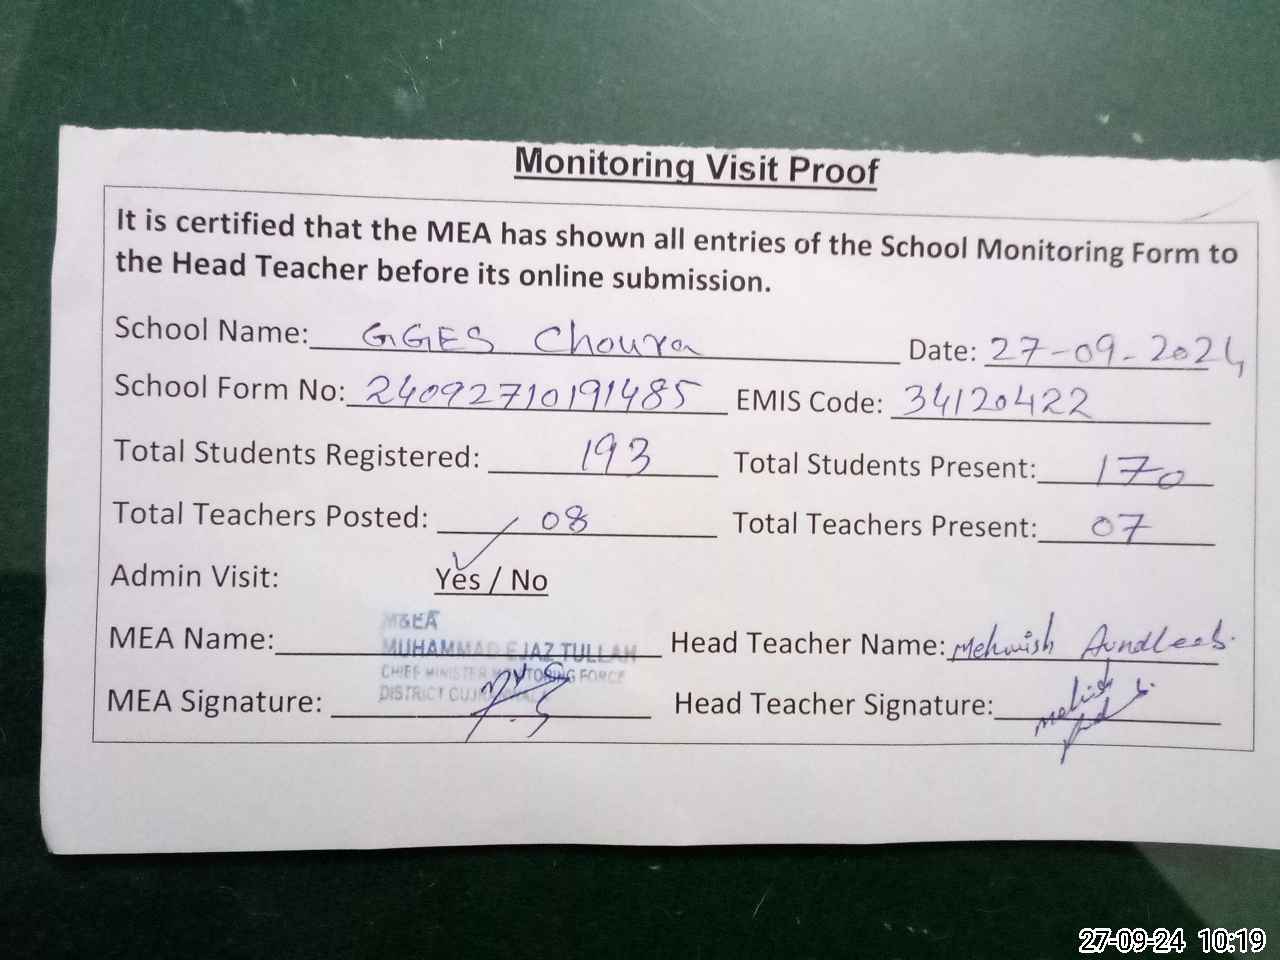 Monitoring Visit Proof
It is certified that the MEA has shown all entries of the School Monitoring Form to
the Head Teacher before its online submission.
School Name: GGES Choura Date: 27-09-2024
School Form No: 24092710191485 EMIS Code: 34120422
Total Students Registered: 193 Total Students Present: 170
Total Teachers Posted: 08 Total Teachers Present: 07
Admin Visit: Yes / No
M&EA
MEA Name: MUHAMMAD EJAZ TULLAH Head Teacher Name: Mehwish Aundleeb.
CHIEF MINISTER MONITORING FORCE
DISTRICT
MEA Signature: Head Teacher Signature:
27-09-24 10:19